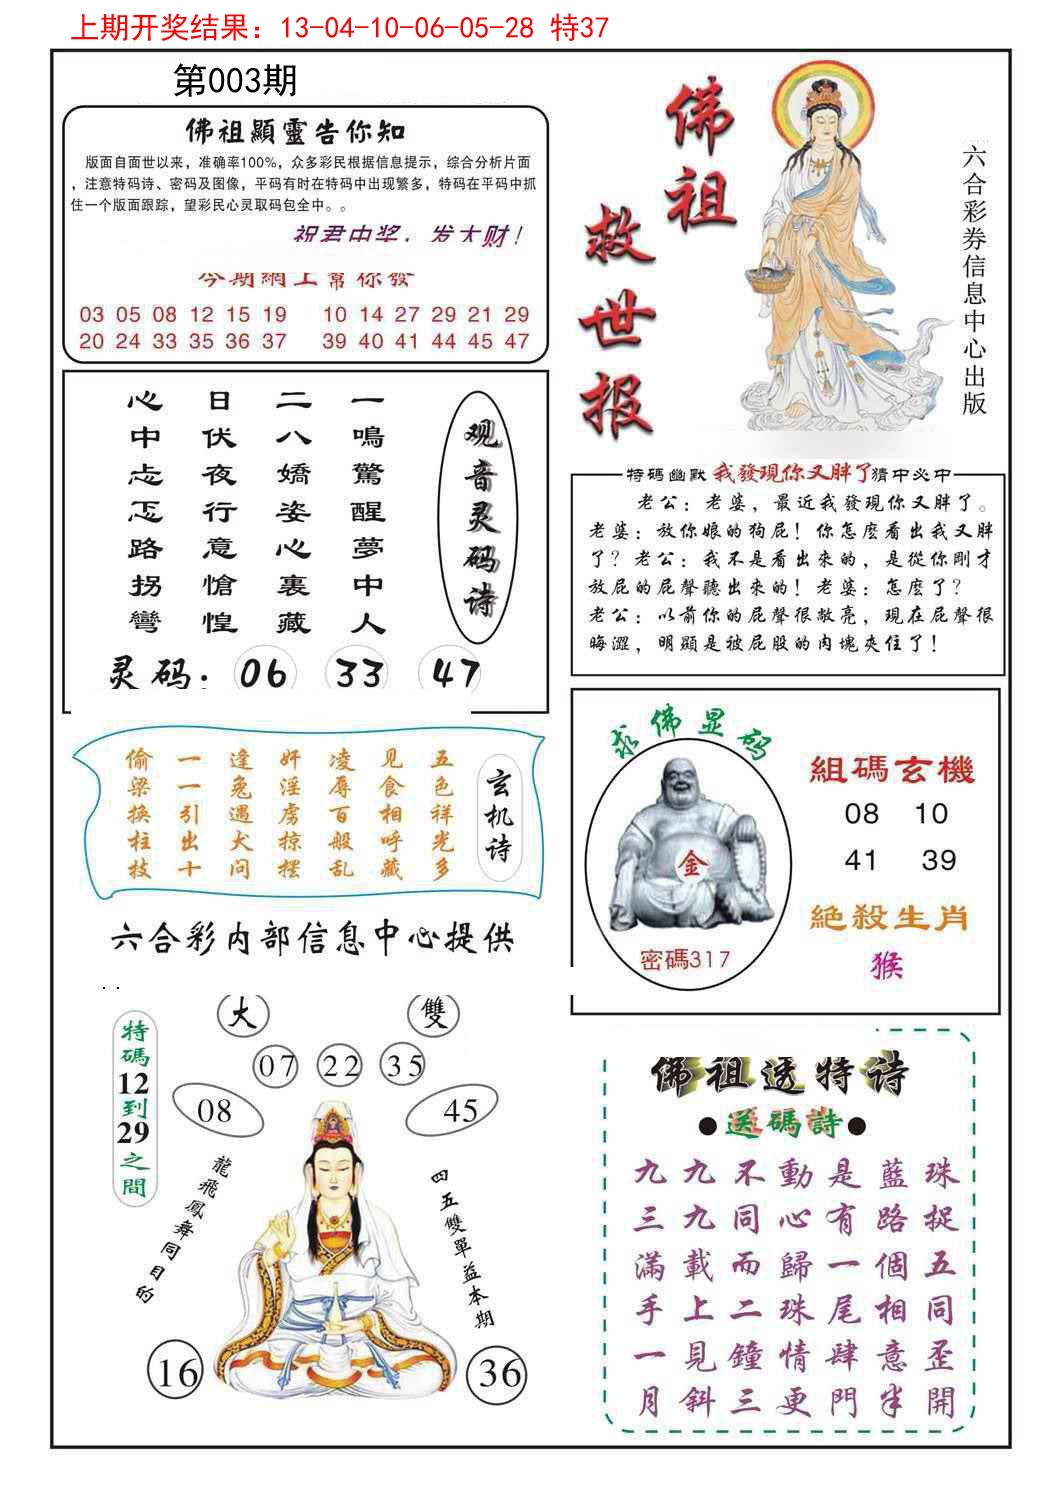 上期开奖结果：13-04-10-06-05-28 特37
第003期
佛祖顯靈告你知
版面自面世以来，准确率100%，众多彩民根据信息提示，综合分析片面
，注意特码诗、密码及图像，平码有时在特码中出现繁多，特码在平码中抓
住一个版面跟踪，望彩民心灵取码包全中。。
祝君中奖，发大财！
今期網上幫你發
03 05 08 12 15 19 10 14 27 29 21 29
20 24 33 35 36 37 39 40 41 44 45 47
佛祖
救世报
六合彩券信息中心出版
观音灵码诗
一鳴驚醒夢中人
二八嬌姿心裏藏
日伏夜行意愴惶
心中忐忑路拐彎
灵码：06 33 47
特碼幽默 我發現你又胖了 猜中必中
老公：老婆，最近我發現你又胖了。
老婆：放你娘的狗屁！你怎麽看出我又胖
了？老公：我不是看出來的，是從你剛才
放屁的屁聲聽出來的！老婆：怎麽了？
老公：以前你的屁聲很敞亮，現在屁聲很
晦澀，明顯是被屁股的肉塊夾住了！
玄机诗
五色祥光多
见食相呼藏
凌辱百般乱
奸淫虏掠摆
逢兔遇犬问
一一引出十
偷梁换柱技
六合彩内部信息中心提供
求佛显码
金
密碼317
組碼玄機
08 10
41 39
絕殺生肖
猴
特碼12到29之間
大 雙
07 22 35
08 45
龍飛鳳舞同目的
四五雙單益本期
16 36
佛祖透特诗
●送碼詩●
九九不動是藍珠
三九同心有路捉
滿載而歸一個五
手上二珠尾相同
一見鐘情肆意歪
月斜三更門半開